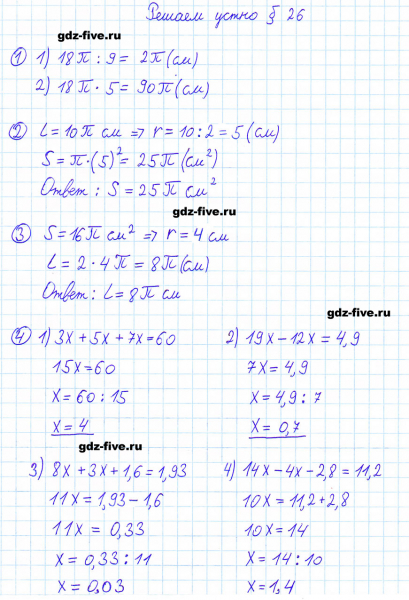 Решаем устно § 26
gdz-five.ru
① 1) 18π : 9 = 2π (см)
2) 18π · 5 = 90π (см)
② L = 10π см => r = 10 : 2 = 5 (см)
S = π · (5)² = 25π (см²)
Ответ : S = 25π см²
gdz-five.ru
③ S = 16π см² => r = 4 см
L = 2 · 4π = 8π (см)
Ответ: L = 8π см
gdz-five.ru
④ 1) 3x + 5x + 7x = 60
15x = 60
x = 60 : 15
x = 4
2) 19x − 12x = 4,9
7x = 4,9
x = 4,9 : 7
x = 0,7
gdz-five.ru
3) 8x + 3x + 1,6 = 1,93
11x = 1,93 − 1,6
11x = 0,33
x = 0,33 : 11
x = 0,03
4) 14x − 4x − 2,8 = 11,2
10x = 11,2 + 2,8
10x = 14
x = 14 : 10
x = 1,4